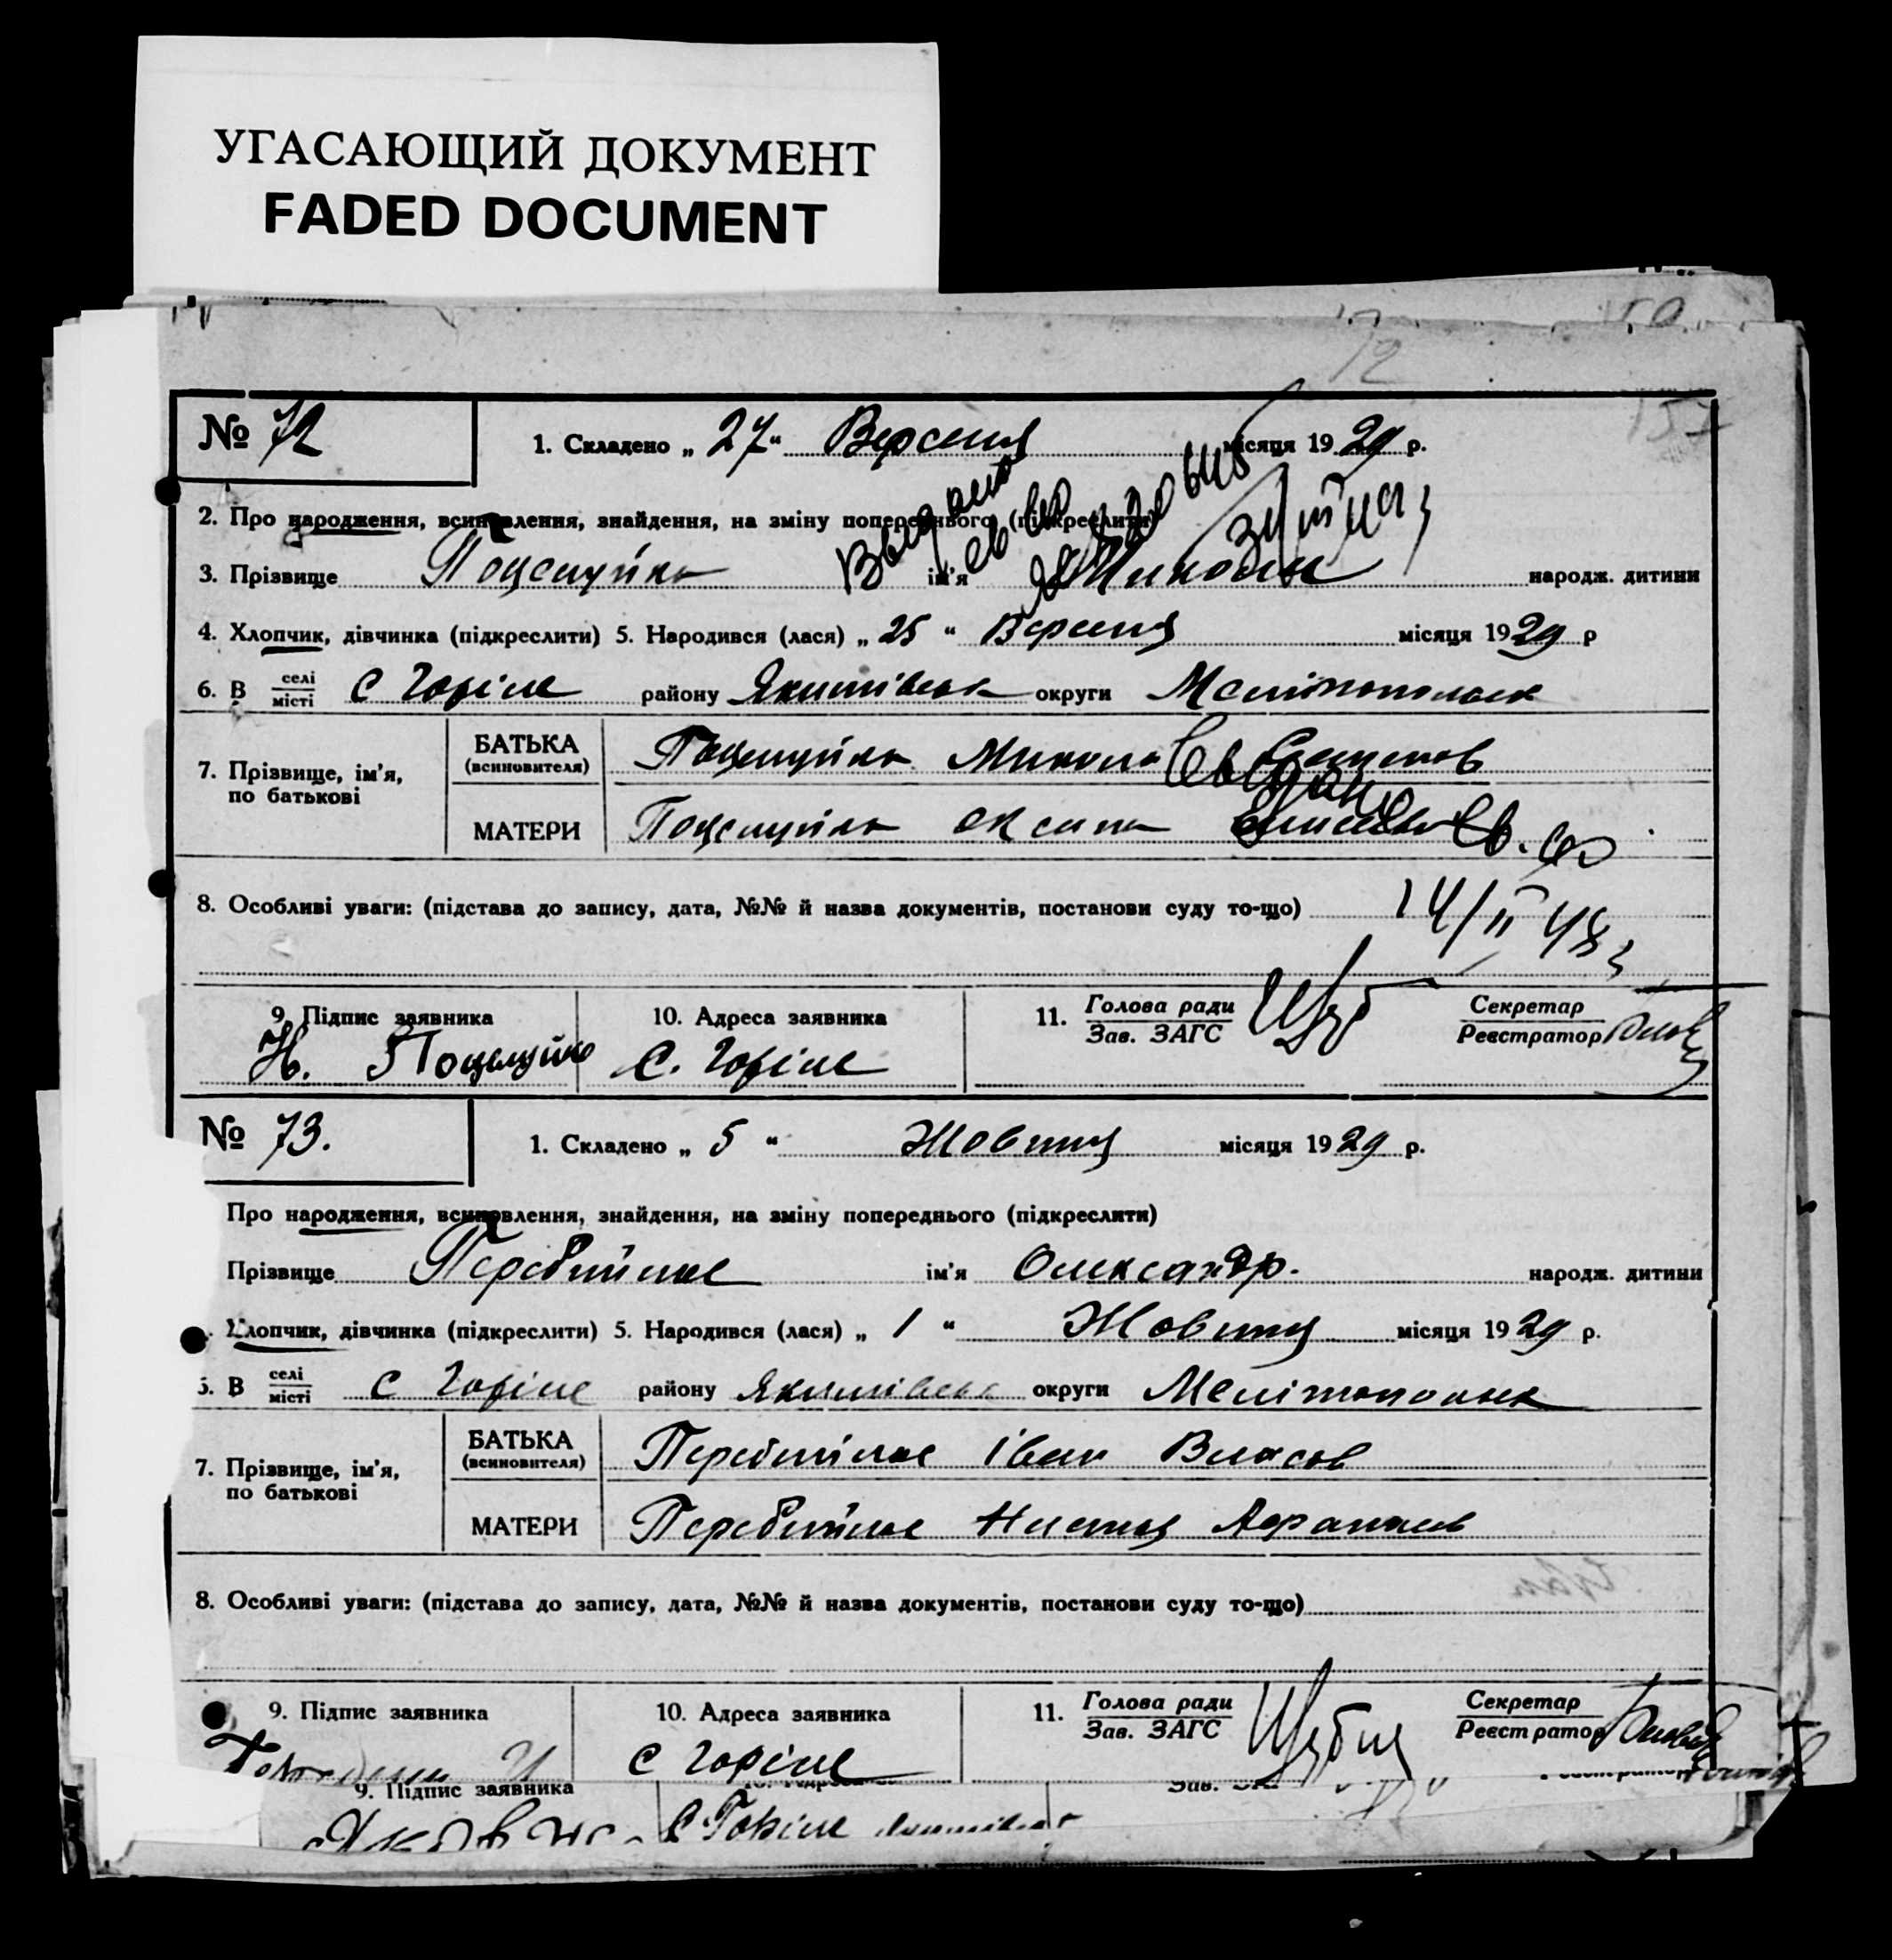 УГАСАЮЩИЙ ДОКУМЕНТ
FADED DOCUMENT
72
157
№ 72
1. Складено „ 27 “ Вересня місяця 19 29 р.
2. Про народження, всиновлення, знайдення, на зміну попереднього (підкреслити)
3. Прізвище Поцелуйко ім'я Микола народж. дитини
4. Хлопчик, дівчинка (підкреслити) 5. Народився (лася) „ 25 “ Вересня місяця 19 29 р
6. В селі місті с Горіле району Якимівськ округи Мелітопольск
7. Прізвище, ім'я, по батькові
БАТЬКА (всиновителя) Поцелуйко Микола
МАТЕРИ Поцелуйко Оксана
8. Особливі уваги: (підстава до запису, дата, №№ й назва документів, постанови суду то-що) 14/II 48
9. Підпис заявника Н. Поцелуйко
10. Адреса заявника С. Горіле
11. Голова ради Зав. ЗАГС
Секретар Реєстратор
№ 73.
1. Складено „ 5 “ Жовтня місяця 19 29 р.
Про народження, всиновлення, знайдення, на зміну попереднього (підкреслити)
Прізвище Перебийніс ім'я Олександр. народж. дитини
Хлопчик, дівчинка (підкреслити) 5. Народився (лася) „ 1 “ Жовтня місяця 19 29 р.
6. В селі місті с Горіле району Якимівськ округи Мелітопольск
7. Прізвище, ім'я, по батькові
БАТЬКА (всиновителя) Перебийніс Іван Власов
МАТЕРИ Перебийніс Настя
8. Особливі уваги: (підстава до запису, дата, №№ й назва документів, постанови суду то-що)
9. Підпис заявника
10. Адреса заявника с Горіле
11. Голова ради Зав. ЗАГС
Секретар Реєстратор
9. Підпис заявника
С Горіле